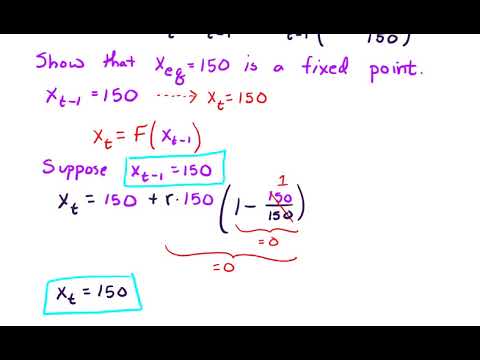 150)
Show that x_eq = 150 is a fixed point.
x_t-1 = 150 ----> x_t = 150
x_t = F(x_t-1)
Suppose x_t-1 = 150
1
x_t = 150 + r·150 (1 - 150/150)
=0
=0
x_t = 150